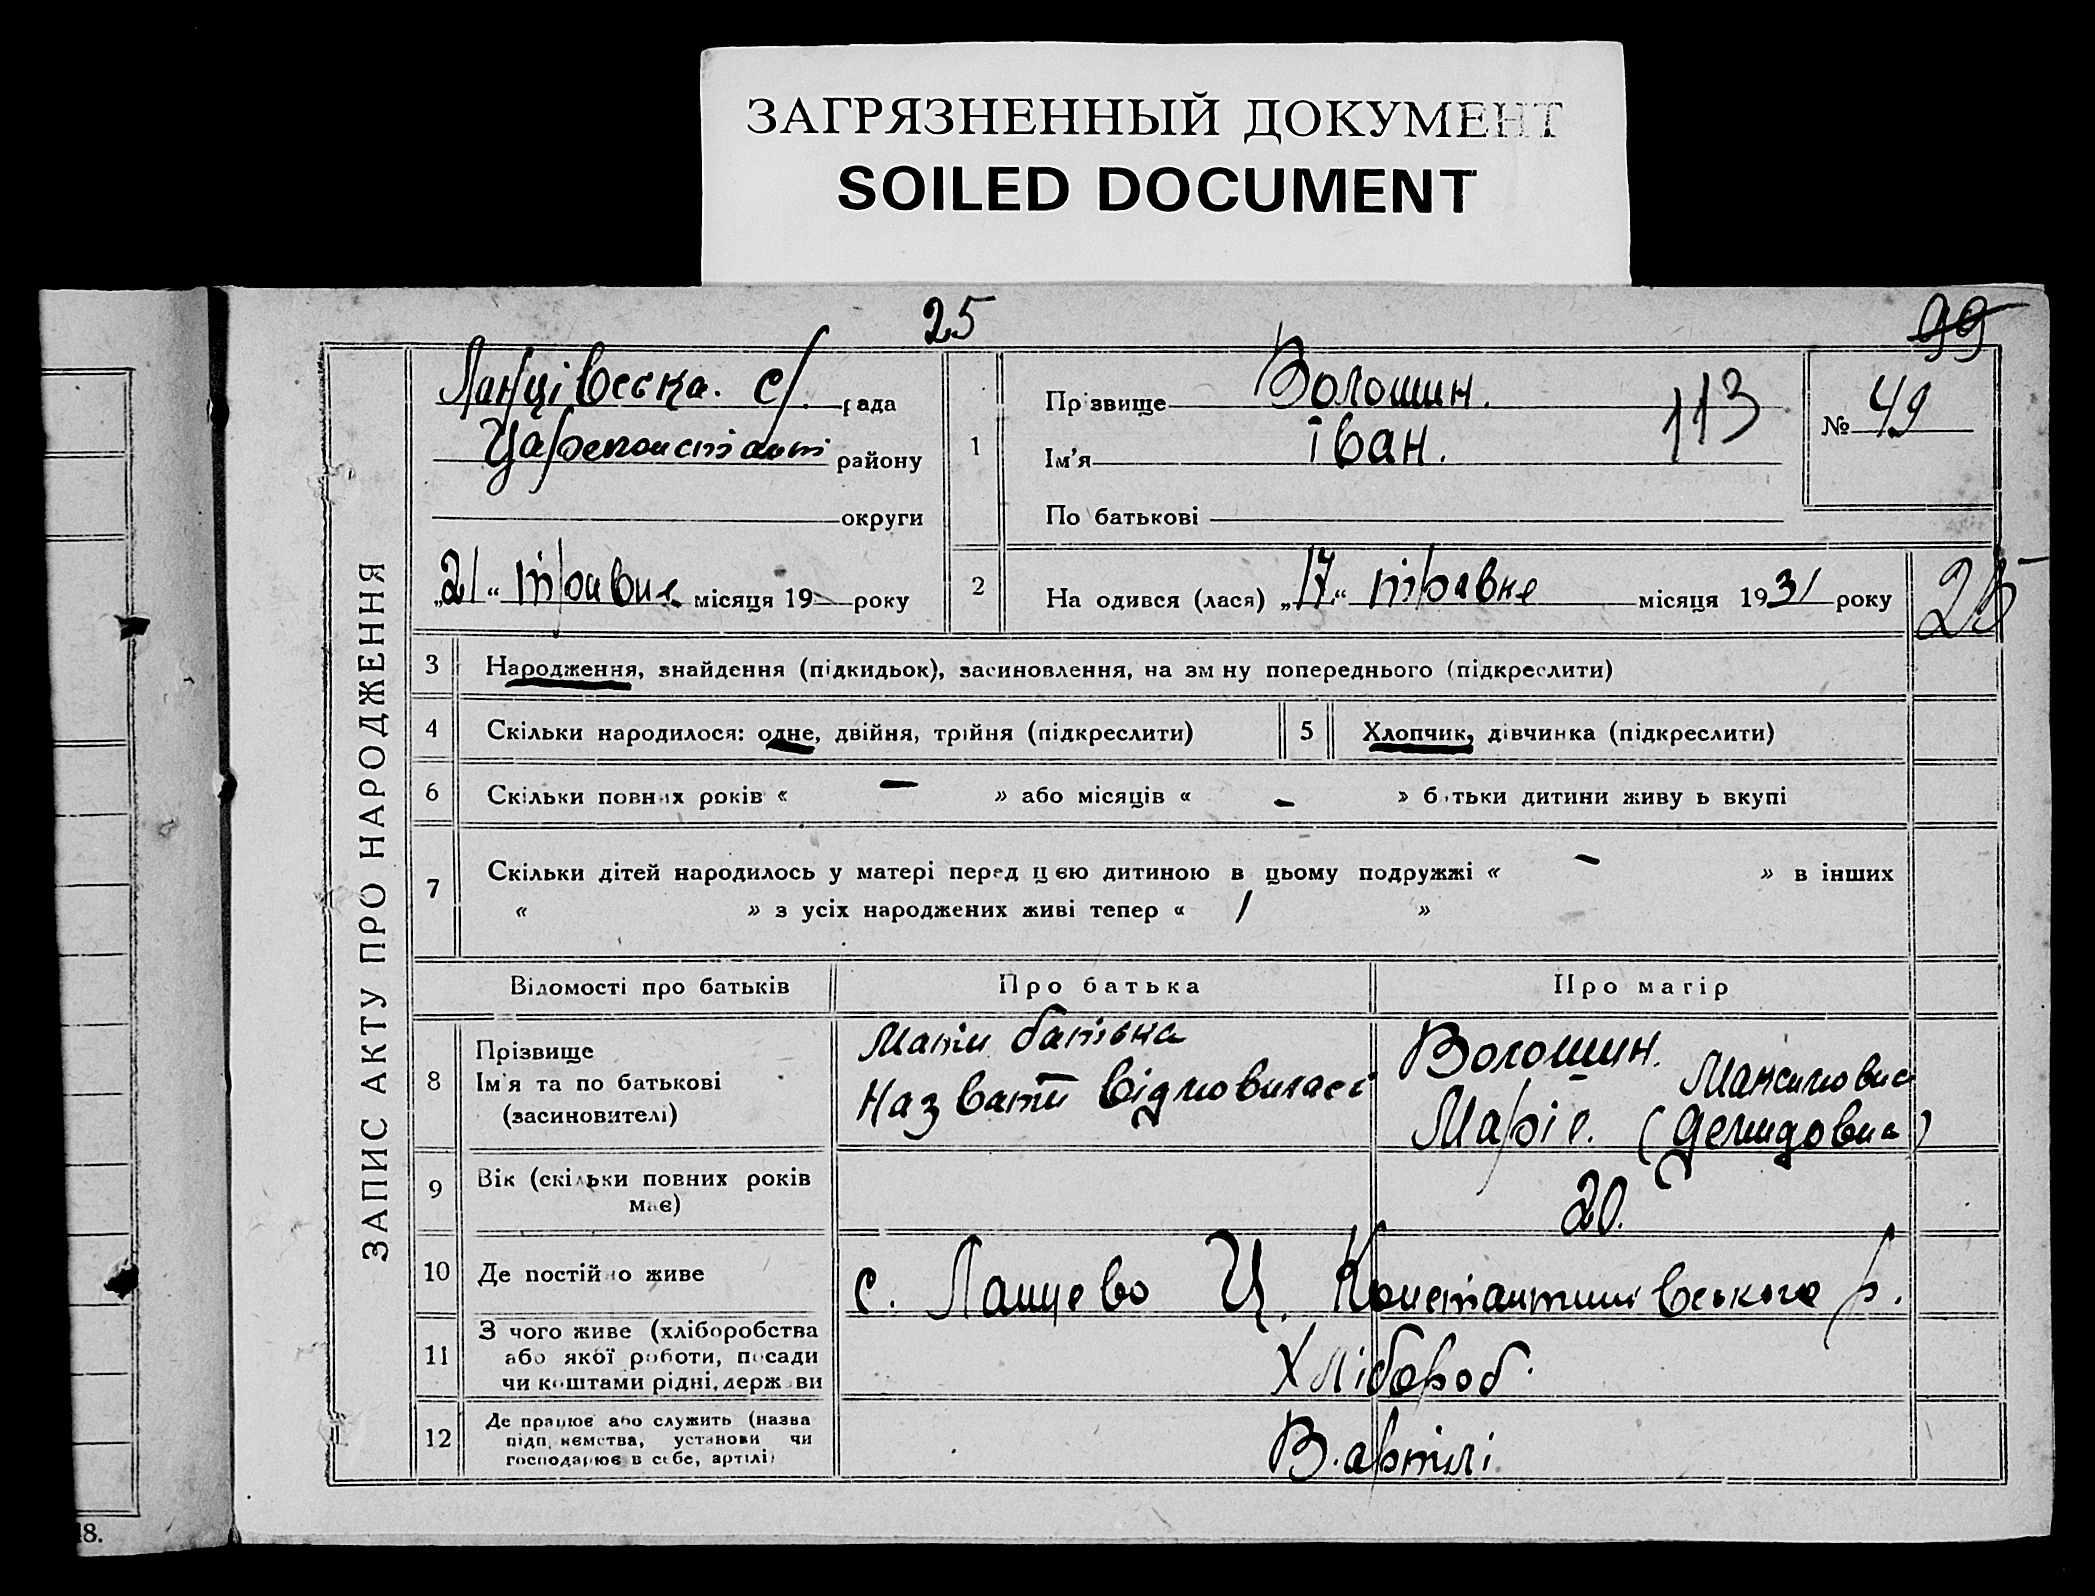 ЗАГРЯЗНЕННЫЙ ДОКУМЕНТ
SOILED DOCUMENT
25
99
ЗАПИС АКТУ ПРО НАРОДЖЕННЯ
Ланцівська. с/. рада
району
округи
„21“ травня місяця 19 року
1
Прізвище Волошин.
113
Ім'я Іван.
По батькові
№ 49
2
На одився (лася) „17“ травня місяця 1931 року
25
3 Народження, знайдення (підкидьок), засиновлення, на зм ну попереднього (підкреслити)
4 Скільки народилося: одне, двійня, трійня (підкреслити)
5 Хлопчик, дівчинка (підкреслити)
6 Скільки повних років « — » або місяців « - » батьки дитини живу ь вкупі
7 Скільки дітей народилось у матері перед цією дитиною в цьому подружжі « - » в інших
« » з усіх народжених живі тепер « 1 »
Відомості про батьків
Про батька
Про матір
8 Прізвище
Ім'я та по батькові
(засиновителі)
Мати батька
назвати відмовилась
Волошин.
Максимовна
Марія. (Демидовна)
9 Вік (скільки повних років
має)
20.
10 Де постійно живе
с. Ланцево Ц. Константинівського р.
11 З чого живе (хліборобства
або якої роботи, посади
чи коштами рідні, держави
Хлібороб.
12 Де працює або служить (назва
підприємства, установи чи
господарює в себе, артілі)
В. артілі.
18.